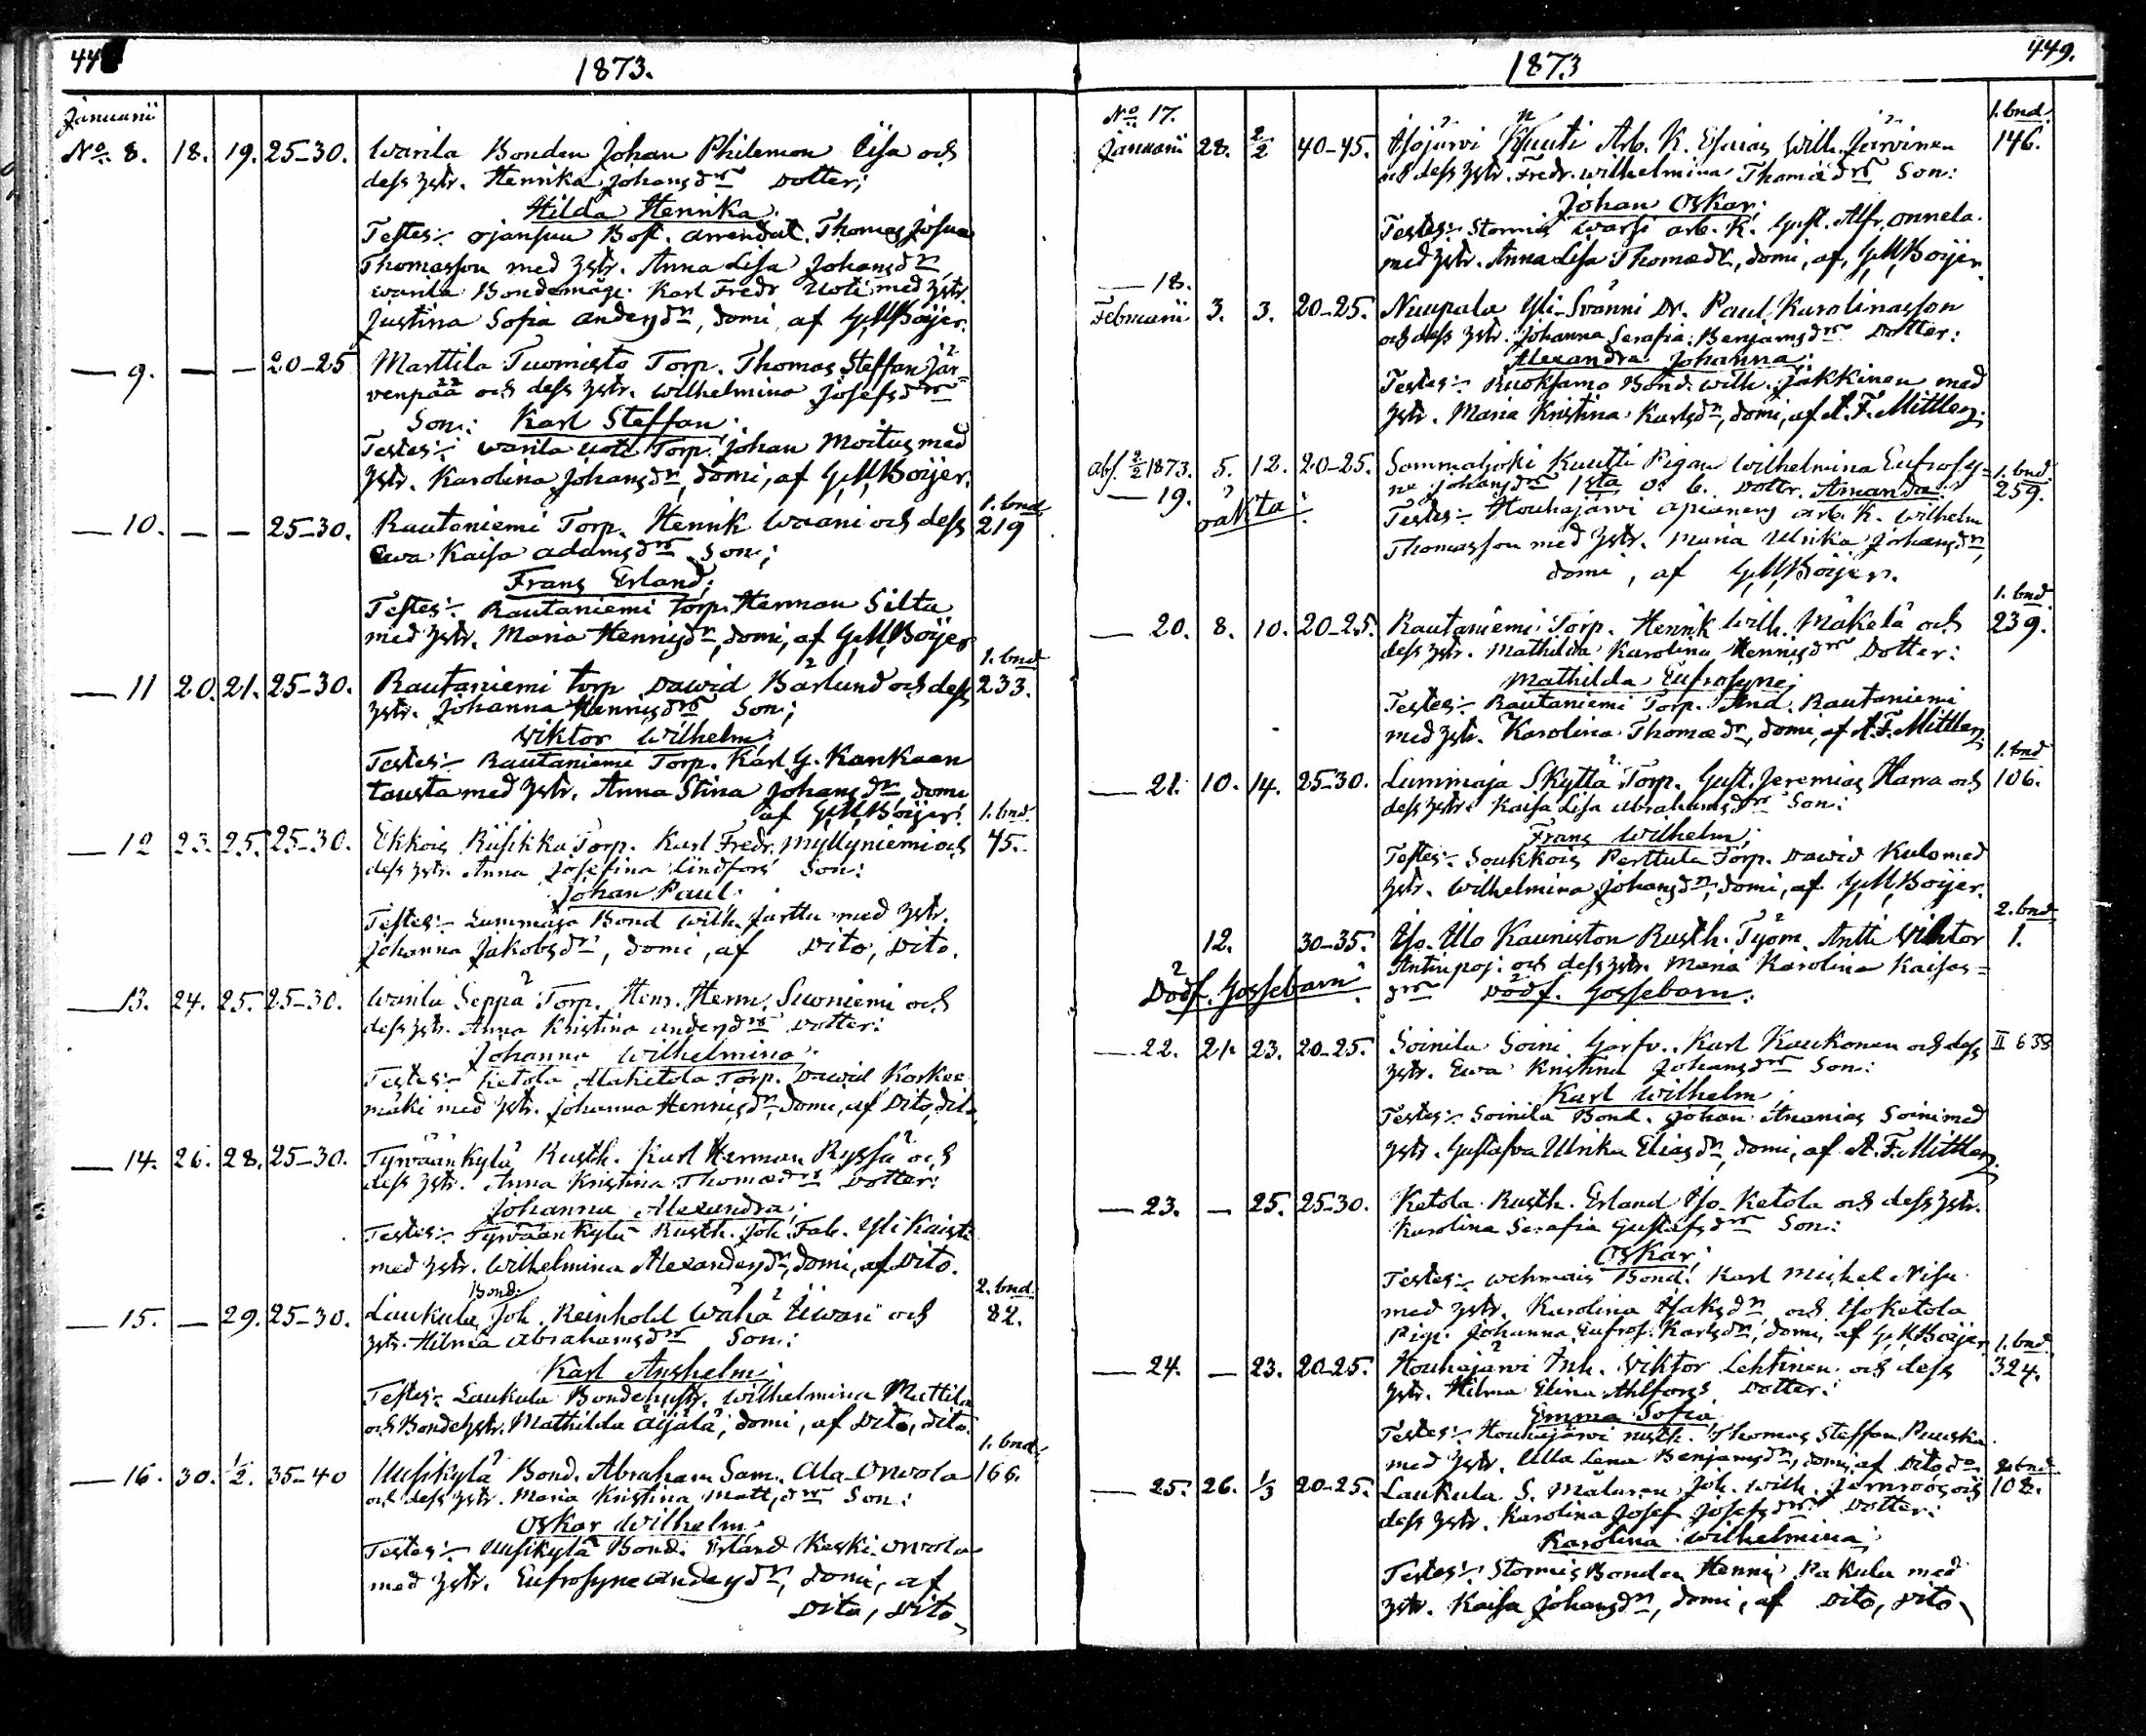 1873.
Januarii
No 8. 18. 19. 25-30. Warila Bonden Johan Philemon Iisa och
dess hstr. Henrika Johansdr Dotter;
Hilda Henrika.
Testes:- Ojansuu Bost. arrendat. Thomas Josua
Thomasson med hstr. Anna Lisa Johansdr,
Warila Bondemåg. Karl Fredr Uoti med hstr.
Justina Sofia Andersdr, domi, af G,M,Boijer.
— 9. — — 20-25 Marttila Tuomisto Torp. Thomas Steffan Jär=
venpää och dess hstr. Wilhelmina Josefsdr
Son: Karl Steffan.
Testes:- Warila Uoti Torp. Johan Moitus med
hstr. Karolina Johansdr, domi, af G,M,Boijer.
— 10. — — 25-30. Rautaniemi Torp. Henrik Waani och dess 1. bnd 219
Ewa Kaisa Adamsdr Son;
Frans Erland;
Testes:- Rautaniemi Torp. Herman Silta
med hstr. Maria Henriksdr, domi, af G,M,Boijer
— 11 20. 21. 25-30. Rautaniemi torp David Bärlund och dess 1. bnd 233.
hstr. Johanna Henriksdr Son;
Viktor Wilhelm;
Testes:- Rautaniemi Torp. Karl G. Kankaan
tausta med hstr. Anna Stina Johansdr domi
af G,M,Boijer.
— 12 23. 25. 25-30. Ekkois Riisikka Torp. Karl Fredr. Myllyniemi och 1. bnd. 45.
dess hstr. Anna Josefina Lindfors Son:
Johan Paul.
Testes:- Lummaja Bond Wilh. Jarttu med hstr.
Johanna Jakobsdr, domi, af Dito, Dito.
— 13. 24. 25. 25-30. Warila Seppä Torp. Henr. Herm. Suoniemi och
dess hstr. Anna Kristina Andersdr Dotter:
Johanna Wilhelmina.
Testes:- Ketola Alaketola Torp. David Koskee
mäki med hstr. Johanna Henriksdr, domi, af Dito, dito.
— 14. 26. 28. 25-30. Tyrväänkylä Rusth. Karl Herman Ryssä och
dess hstr. Anna Kristina Thomædr Dotter:
Johanna Alexandra;
Testes:- Tyrväänkylä Rusth. Joh. Fab. Yli Kaista
med hstr. Wilhelmina Alexandersdr, domi, af Dito.
— 15. — 29. 25-30. Laukula Bond. Joh. Reinhold Wäha Iiwari och 2. bnd. 82.
hstr. Hilma Abrahamsdr Son:
Karl Anshelm;
Testes:- Laukula Bondehstr. Wilhelmina Mattila
och Bondehstr. Mathilda Äijälä, domi, af Dito, dito.
— 16. 30. 1/2. 35-40 Uusikylä Bond. Abraham Sam. Ala-Orwola 1. bnd. 166.
och dess hstr. Maria Kristina Matt,dr Son:
Oskar Wilhelm.
Testes:- Uusikylä Bond. Erland Keski-Orwola
med hstr. Eufrosyne Andersdr, domi, af
Dito, Dito.
449.
1873
No 17.
Januarii 28. 2/2 40-45. Isojärvi Knuuti Arb. K. Esaias Wilh. Järvinen 1. bnd. 146.
och dess hstr. Fredr. Wilhelmina Thomædr Son:
Johan Oskar;
Testes:- Stormis Warsi arb. K. Gust. Alfr. Onnela.
med hstr. Anna Lisa Thomædr, domi, af, G,M,Boijer.
— 18.
Februarii 3. 3. 20-25. Nuupala Yli-Svänni Dr. Paul Karolinasson
och dess hstr. Johanna Serafia Benjamsdr Dotter:
Alexandra Johanna;
Testes:- Ruoksamo Bond. Wilh. Jäkkinen med
hstr. Maria Kristina Karlsdr, domi, af A.F.Mittler.
abs. 2/2 1873. 5. 12. 20-25. Sammaljoki Kuutti Pigan Wilhelmina Eufrosy= 1. bnd 259.
— 19. oäkta: ne Johansdr 1sta o. b. Dottr. Amanda.
Testes:- Houhajärvi arb. K. Wilhelm
Thomasson med hstr. Maria Ulrika Johansdr,
domi, af G,M,Boijer.
— 20. 8. 10. 20-25. Rautaniemi Torp. Henrik Wilh. Mäkelä och 1. bnd 239.
dess hstr. Mathilda Karolina Henriksdr Dotter:
Mathilda Eufrosyne;
Testes:- Rautaniemi Torp. And. Rautaniemi
med hstr. Karolina Thomædr, domi, af A.F.Mittler.
— 21. 10. 14. 25-30. Lummaja Skyttä Torp. Gust. Jeremias Harra och 1. bnd 106.
dess hstr. Kaisa Lisa Abrahamsdr Son:
Frans Wilhelm;
Testes:- Soukkois Perttula Torp. David Kulo med
hstr. Wilhelmina Johansdr, domi, af G,M,Boijer.
12. 30-35. Iso-Ulo Kauniston Rusth. Työm. Antti Viktor 2. bnd 1.
Antinpoj. och dess hstr. Maria Karolina Kaisas=
Dödf. Gossebarn. dr Dödf. Gossebarn.
— 22. 21. 23. 20-25. Soinila Soini Garfv. Karl Kaukonen och dess II 638
hstr. Ewa Kristina Johansdr Son:
Karl Wilhelm
Testes:- Soinila Bond. Johan Ananias Soini med
hstr. Gustafva Ulrika Eliasdr, domi, af A.F.Mittler.
— 23. — 25. 25-30. Ketola Rusth. Erland Iso-Ketola och dess hstr.
Karolina Serafia Gustafsdr Son:
Oskar;
Testes:- Wehmais Bond. Karl Mickel
med hstr. Karolina Isaksdr, och Isoketola
Pig. Johanna Eufros. Karlsdr, domi, af G,M,Boijer.
— 24. — 23. 20-25. Houhajärvi Inh. Viktor Lehtinen och dess 1. bnd. 324.
hstr. Hilma Elina Ahlfors Dotter:
Emma Sofia
Testes:- Houhajärvi rusth. Thomas Steffan Puuska
med hstr. Ulla Lena Benjamsdr, domi, af Dito do.
— 25. 26. 1/3 20-25. Laukula S. Målaren Joh. Wilh. Jernroos och 2. bnd 108.
dess hstr. Karolina Josef. Josefsdr Dotter:
Karolina Wilhelmina;
Testes:- Stormis Bonden Henrik Pakula med
hstr. Kaisa Johansdr, domi, af Dito, Dito.